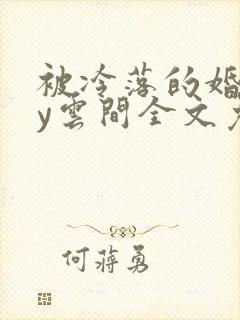 被冷落的婚
y雲間全文
何蔣勇